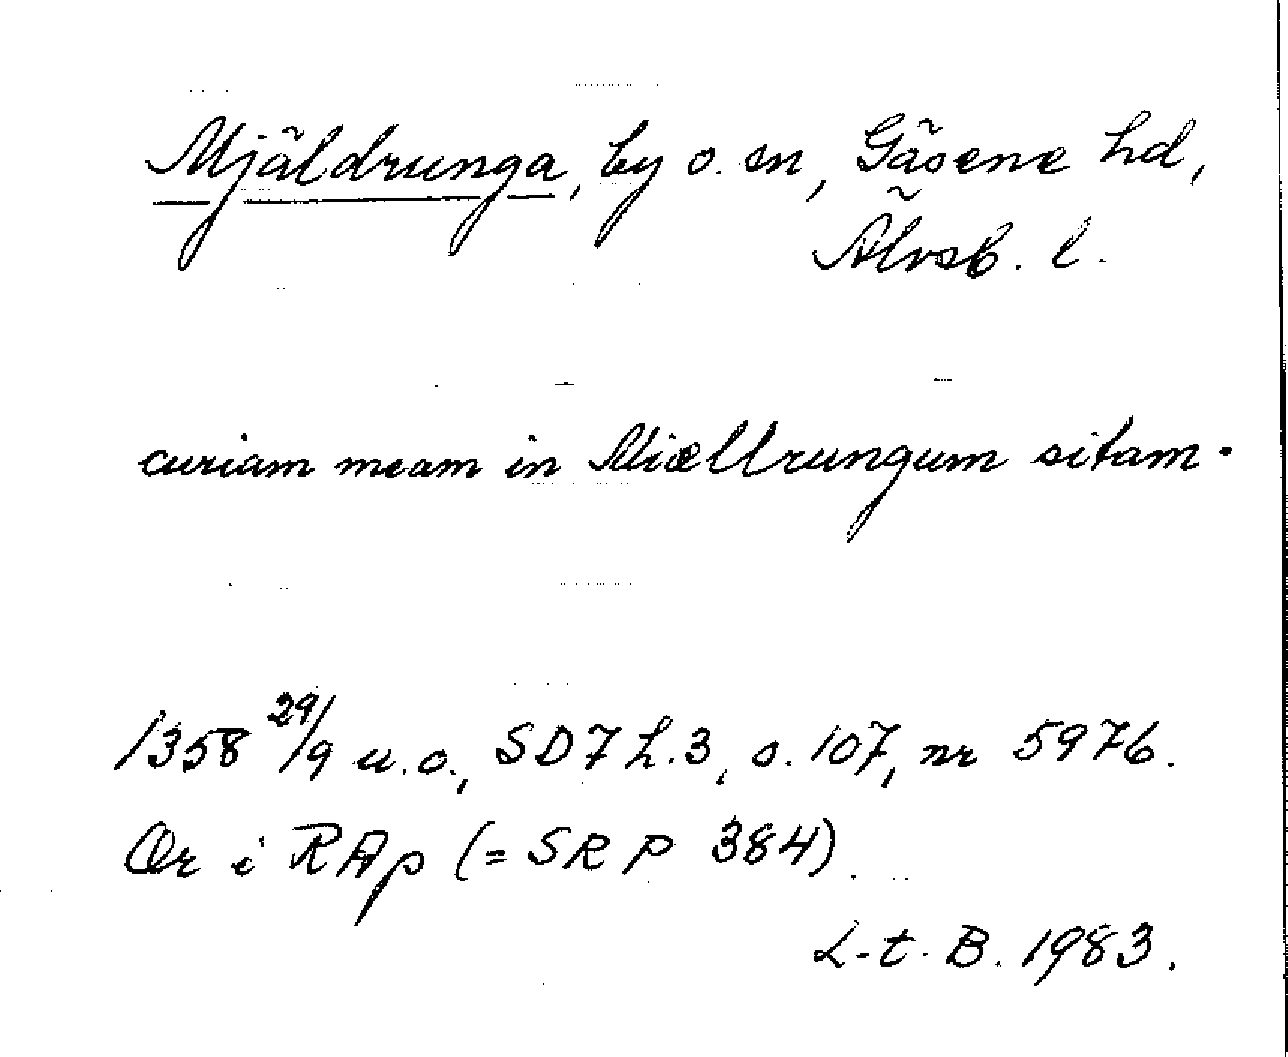 Mjäldrunga, by o. sn, Gäsene hd,
Älvsb. l.
curiam meam in Miællrungum sitam.
1358 29/9 u.o., SD 7 h.3, s. 107, nr 5976.
Or i RAp (= SRP 384).
L-t. B. 1983.